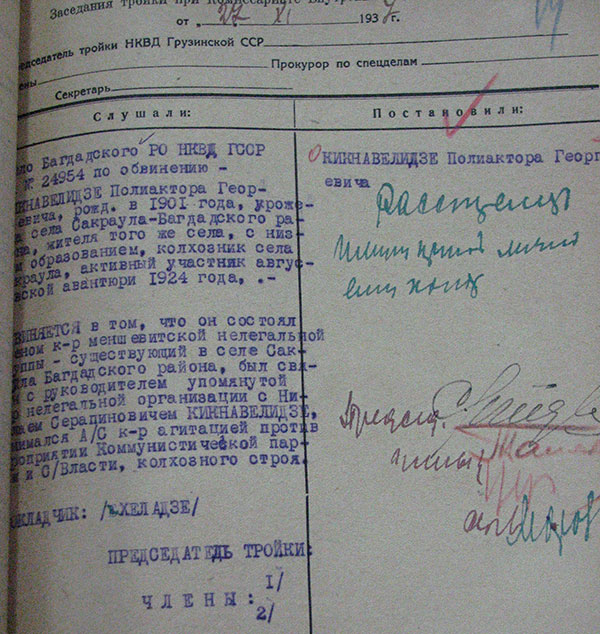 Заседания тройки при Комиссариате Внутр
от 27 XI 1937
едседатель тройки НКВД Грузинской ССР
ены Прокурор по спецделам
Секретарь
Слушали: Постановили:
ело Багдадского РО НКВД ГССР
№ 24954 по обвинению -
КИКНАВЕЛИДЗЕ Полиактора Геор-
евича, рожд. в 1901 года, уроже-
а села Сакраула-Багдадского ра-
на, жителя того же села, с низ-
м образованием, колхозник села
краула, активный участник авгус-
вской авантюри 1924 года, .-
ВИНЯЕТСЯ в том, что он состоял
еном к-р меншевитской нелегальной
ппы - существующий в селе Сак-
ла Багдадского района, был свя-
н с руководителем упомянутой
р нелегальной организации с Ни-
лаем Серапиновичем КИКНАВЕЛИДЗЕ,
нимался А/С к-р агитацией против
роприятии Коммунистической пар-
и и С/Власти, колхозного строя.
ОКЛАДЧИК: / ХЕЛАДЗЕ/
ПРЕДСЕДАТЕЛЬ ТРОЙКИ:
1/
ЧЛЕНЫ:
2/
КИКНАВЕЛИДЗЕ Полиактора Георг
евича
Расстрелять